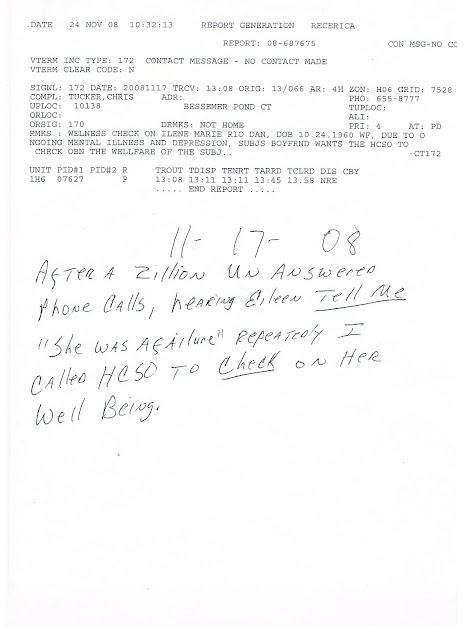 .DATE 24 NOV 08 10:32:13 REPORT GENERATION RECERICA
REPORT: 08-687675 CON MSG-NO CO
VTERM INC TYPE: 172 CONTACT MESSAGE - NO CONTACT MADE
VTERM CLEAR CODE: N
SIGNL: 172 DATE: 20081117 TRCV: 13:08 ORIG: 13/066 AR: 4H ZON: H06 GRID: 7528
COMPL: TUCKER,CHRIS ADR: PHO: 655-8777
UPLOC: 10138 BESSEMER POND CT TUPLOC:
ORLOC: ALI:
ORSIG: 170 DRMKS: NOT HOME PRI: 4 AT: PD
RMKS : WELNESS CHECK ON ILENE MARIE RIO DAN, DOB 10.24.1960 WF, DUE TO O
NGOING MENTAL ILLNESS AND DEPRESSION, SUBJS BOYFRND WANTS THE HCSO TO
CHECK OBN THE WELLFARE OF THE SUBJ.. -CT172
UNIT PID#1 PID#2 R TROUT TDISP TENRT TARRD TCLRD DIS CBY
1H6 07627 P 13:08 13:11 13:11 13:45 13:58 NRE
..... END REPORT .....
11- 17- 08
AFTER A Zillion UN ANSwered
phone CAlls, heARing Eileen Tell Me
"She WAS A fAilure" RepeAtedly I
CAlled HCSO TO Check ON HeR
Well Being.